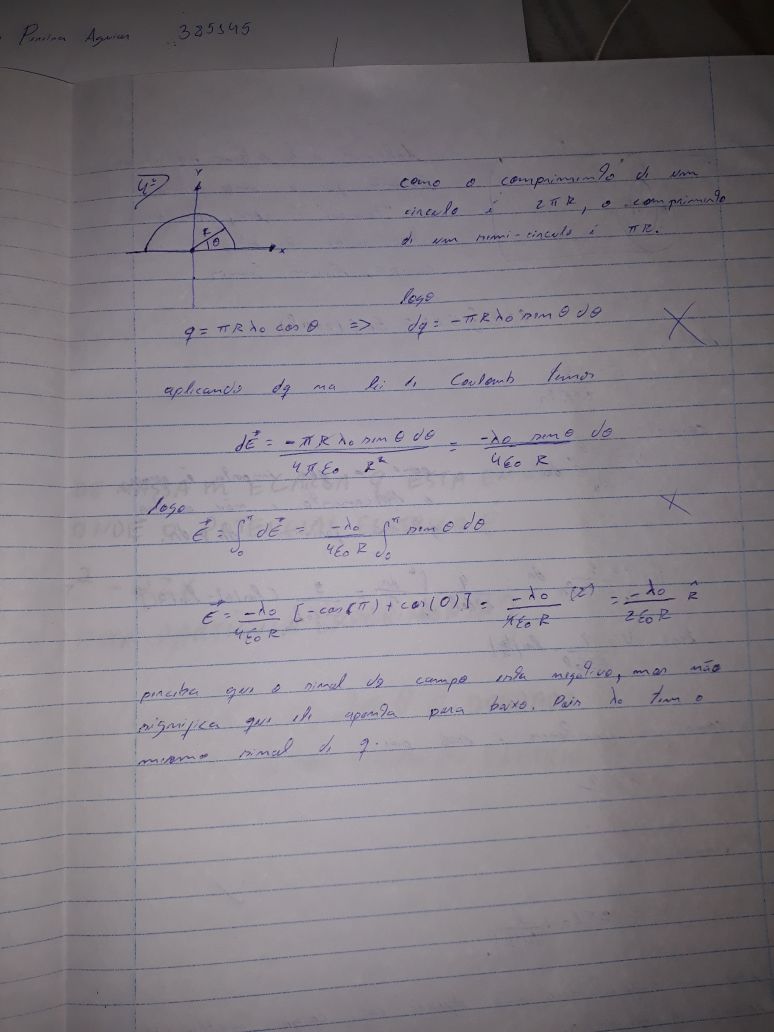 Pereira Aguiar 385345
4ª
Y
como o comprimento de um
círculo é 2πR, o comprimento
de um semi-círculo é πR.
R
θ
x
logo
q = πRλ0 cos θ => dq = -πRλ0 sen θ dθ
aplicando dq na lei de Coulomb temos
dE⃗ = -πRλ0 sen θ dθ / 4πε0 R² = -λ0 sen θ dθ / 4ε0 R
logo
E⃗ = ∫₀^π dE⃗ = -λ0 / 4ε0 R ∫₀^π sen θ dθ
E⃗ = -λ0 / 4ε0 R [-cos(π) + cos(0)] = -λ0 / 4ε0 R (2) = -λ0 / 2ε0 R R̂
perceba que o sinal do campo esta negativo, mas não
significa que ele aponta para baixo. Pois λ0 tem o
mesmo sinal de q.